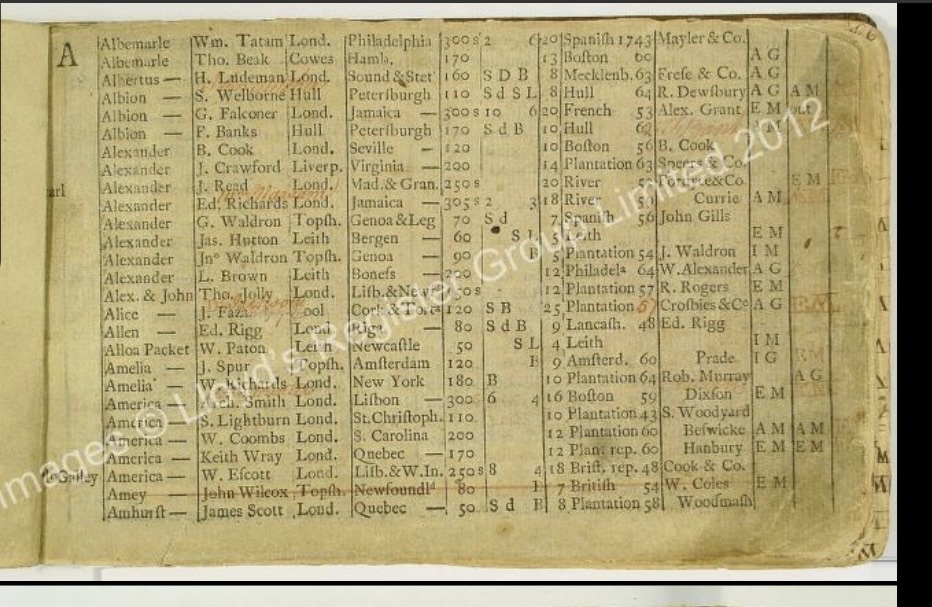 A
Albemarle Wm. Tatam Lond. Philadelphia 300 s 2 6 20 Spanish 1743 Mayler & Co.
Albemarle Tho. Beak Cowes Hamb. 170 13 Boston 60 A G
Albertus — H. Ludeman Lond. Sound & Stet 160 S D B 8 Mecklenb. 63 Frese & Co. A G
Albion — S. Welborne Hull Petersburgh 110 S d S L 8 Hull 64 R. Dewsbury A G A M
Albion — G. Falconer Lond. Jamaica — 300 s 10 6 20 French 53 Alex. Grant E M
Albion — F. Banks Hull Petersburgh 170 S d B 10 Hull M
Alexander B. Cook Lond. Seville — 120 10 Boston 56 B. Cook
Alexander J. Crawford Liverp. Virginia — 200 14 Plantation 63 Speers & Co.
Alexander J. Read Lond. Mad. & Gran. 250 s 20 River E M
Alexander Ed. Richards Lond. Jamaica — 305 s 2 3 18 River Currie A M
Alexander G. Waldron Topsh. Genoa & Leg 70 S d 7 Spanish 56 John Gills
Alexander Jas. Hutton Leith Bergen — 60 S L 5 Leith E M
Alexander Jno Waldron Topsh. Genoa — 90 5 Plantation 54 J. Waldron I M
Alexander L. Brown Leith Boness — 200 12 Philadela 64 W. Alexander A G
Alex. & John Tho. Jolly Lond. 12 Plantation 57 R. Rogers E M
Alice — J. Faza 120 S B 25 Plantation Crosbies & Co A G
Allen — Ed. Rigg Lond Riga — 80 S d B 9 Lancash. 48 Ed. Rigg
Alloa Packet W. Paton Leith Newcastle 50 S L 4 Leith I M
Amelia — J. Spur Topsh. Amsterdam 120 9 Amsterd. 60 Prade I G
Amelia — W. Richards Lond. New York 180 B 10 Plantation 64 Rob. Murray A G
America — Smith Lond. Lisbon — 300 6 4 16 Boston 59 Dixson E M
America — S. Lightburn Lond. St. Christoph. 110 10 Plantation 43 S. Woodyard
America — W. Coombs Lond. S. Carolina 200 12 Plantation 60 Beswicke A M A M
America — Keith Wray Lond. Quebec — 170 12 Plan. rep. 60 Hanbury E M E M
America — W. Escott Lond. Lisb. & W. In. 250 s 8 4 18 Brist. rep. 48 Cook & Co.
Amey — John Wilcox Topsh. Newfoundld 80 7 British 54 W. Coles E M
Amhurst — James Scott Lond. Quebec — 50 S d B 8 Plantation 58 Woodmash
Images © Lloyd's Register Group Limited 2012